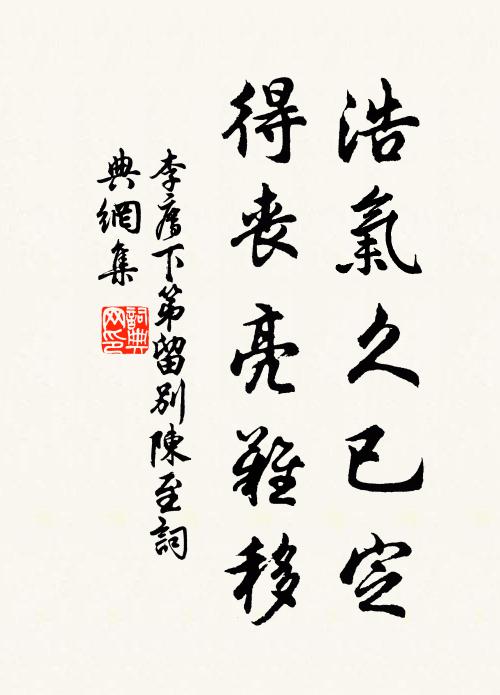 浩氣久已定
得喪亮難移
李廌下第留別陳至詞
典網集
詞典
网印